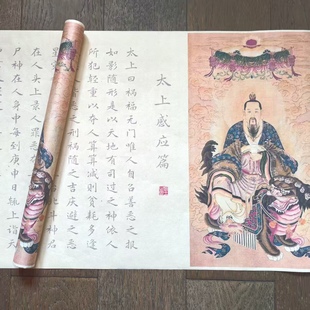 太上感应篇
太上曰祸福无门唯人自召善恶之报
如影随形是以天地有司过之神依人
所犯轻重以夺人算算减则贫耗多逢
之刑祸随之吉庆避之恶
斗神君
在人头上录人罪恶
尸神在人身中每到庚申日辄上诣天